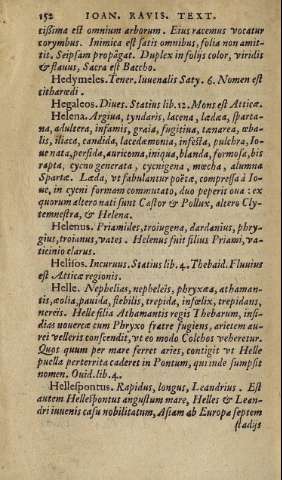 152 IOAN. RAVIS. TEXT.
tissima est omnium arborum. Eius racemus vocatur
corymbus. Inimica est satis omnibus, folia non amit-
tit. Seipsam propagat. Duplex in folijs color, viridis
& flauus, Sacra est Baccho.
Hedymeles. Tener. Iuuenalis Saty. 6. Nomen est
citharœdi.
Hegaleos. Diues. Statius lib. 12. Mons est Atticæ.
Helena. Argiua, tyndaris, lacena, lædæa, sparta-
na, adultera, infamis, graia, fugitiua, tænarea, œba-
lis, iliaca, candida, lacedæmonia, infesta, pulchra, Io-
ue nata, perfida, auricoma, iniqua, blanda, formosa, bis
rapta, cycno generata, cycnigena, mœcha, alumna
Spartæ. Læda, vt fabulantur poëtæ, compressa à Io-
ue, in cycni formam commutato, duo peperit oua: ex
quorum altero nati sunt Castor & Pollux, altero Cly-
temnestra, & Helena.
Helenus. Priamides, troiugena, dardanius, phry-
gius, troianus, vates. Helenus fuit filius Priami, va-
ticinio clarus.
Helisos. Incuruus. Statius lib. 4. Thebaid. Fluuius
est Atticæ regionis.
Helle. Nephelias, nepheleis, phryxæa, athaman-
tis, æolia, pauida, flebilis, trepida, infœlix, trepidans,
nereis. Helle filia Athamantis regis Thebarum, insi-
dias nouercæ cum Phryxo fratre fugiens, arietem au-
rei velleris conscendit, vt eo modo Colchos veheretur.
Quos quum per mare ferret aries, contigit vt Helle
puella perterrita caderet in Pontum, qui inde sumpsit
nomen. Ouid. lib. 4.
Hellespontus. Rapidus, longus, Leandrius. Est
autem Hellespontus angustum mare, Helles & Lean-
dri iuuenis casu nobilitatum, Asiam ab Europa septem
stadijs